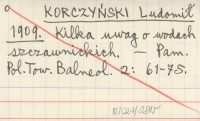 KORCZYŃSKI Ludomił
1909. Kilka uwag o wodach
szczawnickich. — Pam.
Pol. Tow. Balneol. 2: 61-75.